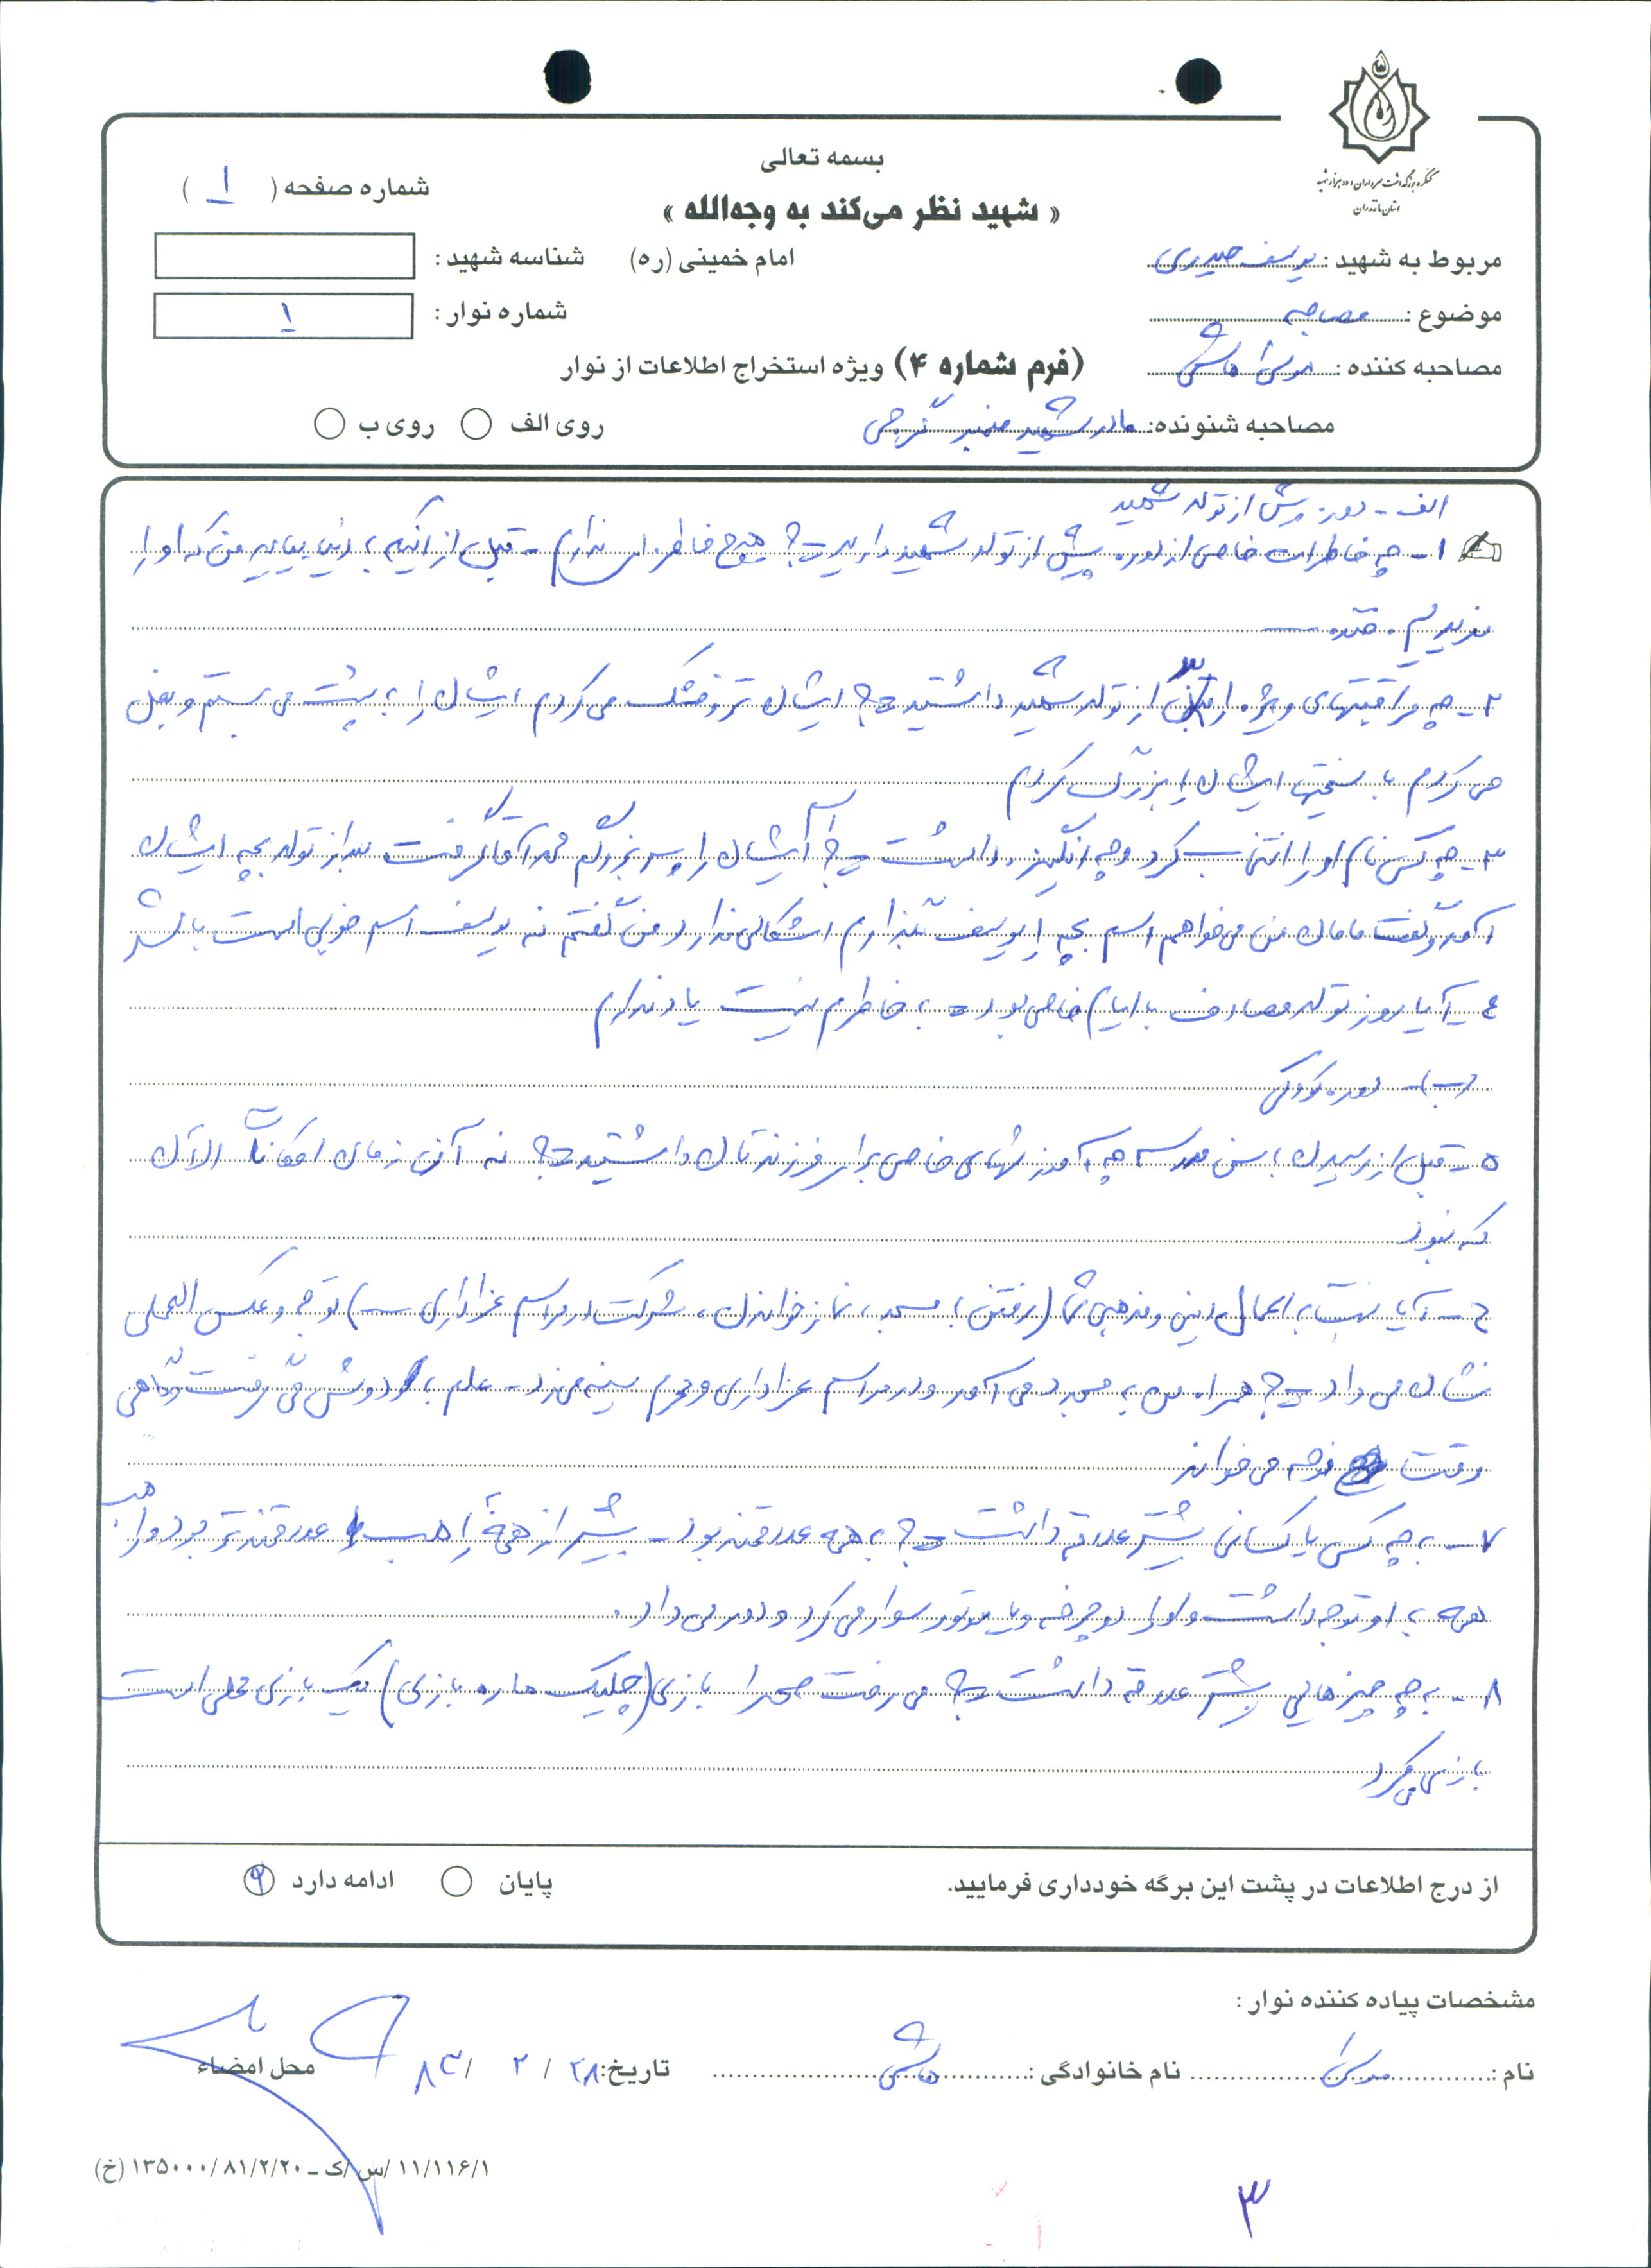 کنگره بزرگداشت سرداران و ده هزار شهید
استان مازندران
بسمه تعالی
« شهید نظر می‌کند به وجه‌الله »
شماره صفحه ( ۱ )
مربوط به شهید : یوسف حیدری
امام خمینی (ره)
شناسه شهید :
موضوع : مصاحبه
شماره نوار : ۱
مصاحبه کننده :
(فرم شماره ۴) ویژه استخراج اطلاعات از نوار
مصاحبه شنونده: مادر شهید
روی الف
روی ب
الف - دوره پیش از تولد شهید
۱- چه خاطرات خاصی از دوره پیش از تولد شهید دارید ج هیچ خاطره ای ندارم - قبل از اینکه به دنیا بیاید من که او را
ندیدم.
۲- چه مراقبتهای ویژه از تولد شهید داشتید ج ایشان تر و خشک می کردم ایشان را به پشت می بستم و بغل
می کردم با سختی ایشان را بزرگ کردم
۳- چه کسی نام او را انتخاب کرد و چه انگیزه داشت ج اسم ایشان را پسر بزرگم محمد آقا گرفت بعد از تولد بچه ایشان
آمد و گفت مامان من می خواهم اسم بچه را یوسف بگذارم اشکالی ندارد من گفتم نه یوسف اسم خوبی است باشد
۴- آیا روز تولد مصادف با ایام خاصی بود = به خاطرم نیست یاد ندارم
(ب) - دوره کودکی
۵- قبل از رسیدن به سن مدرسه چه آموزشهای خاصی برای فرزندتان داشتید ج نه آن زمان امکانات الآن
که نبود
ج - آیا نسبت به اعمال دینی و مذهبی شما (رفتن به مسجد، نماز خواندن، شرکت در مراسم عزاداری ...) توجه و عکس العملی
نشان می داد ج همراه من به مسجد می آمد و در مراسم عزاداری و محرم سینه می زد - علم به دوشش می گرفت و گاهی
وقت نوحه می خواند
۷- به چه کسی یا کسانی بیشتر علاقه داشت ج به همه علاقمند بود - بیشتر از همه علاقمندتر بود و
همه به او توجه داشت و او را دوچرخه و یا موتور سوار می کرد و دور می داد.
۸- به چه چیزهایی بیشتر علاقه داشت ج می رفت صحرا بازی (چلیک ماره بازی) یک بازی محلی است
بازی می کرد
از درج اطلاعات در پشت این برگه خودداری فرمایید.
ادامه دارد
پایان
مشخصات پیاده کننده نوار :
نام :
نام خانوادگی :
تاریخ: ۲۸ / ۲ / ۸۳
محل امضاء
۱۱/۱۱۶/۱ /س/ک ـ ۱۳۵۰۰۰/۸۱/۲/۲۰ (خ)
۳